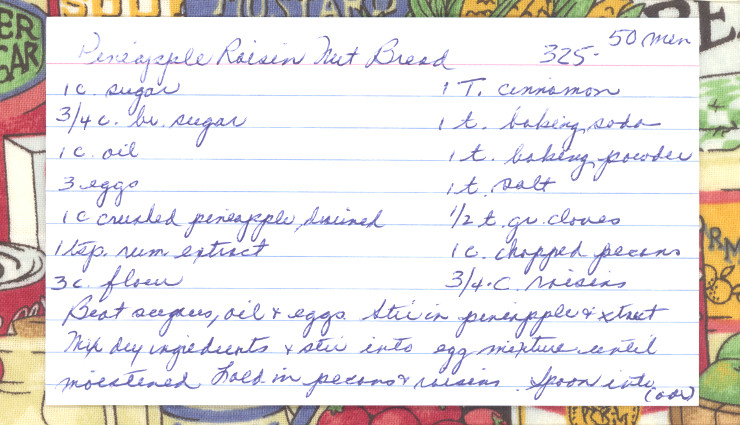 SOUP MUSTARD
Pineapple Raisin Nut Bread 325- 50 min
1 c. sugar 1 T. cinnamon
3/4 c. br. sugar 1 t. baking soda
1 c. oil 1 t. baking powder
3 eggs 1 t. salt
1 c crushed pineapple, drained 1/2 t. gr. cloves
1 tsp. rum extract 1 c. chopped pecans
3 c. flour 3/4 c. raisins
Beat sugars, oil & eggs Stir in pineapple & xtract
Mix dry ingredients & stir into egg mixture until
moistened Fold in pecans & raisins. Spoon into
(over)